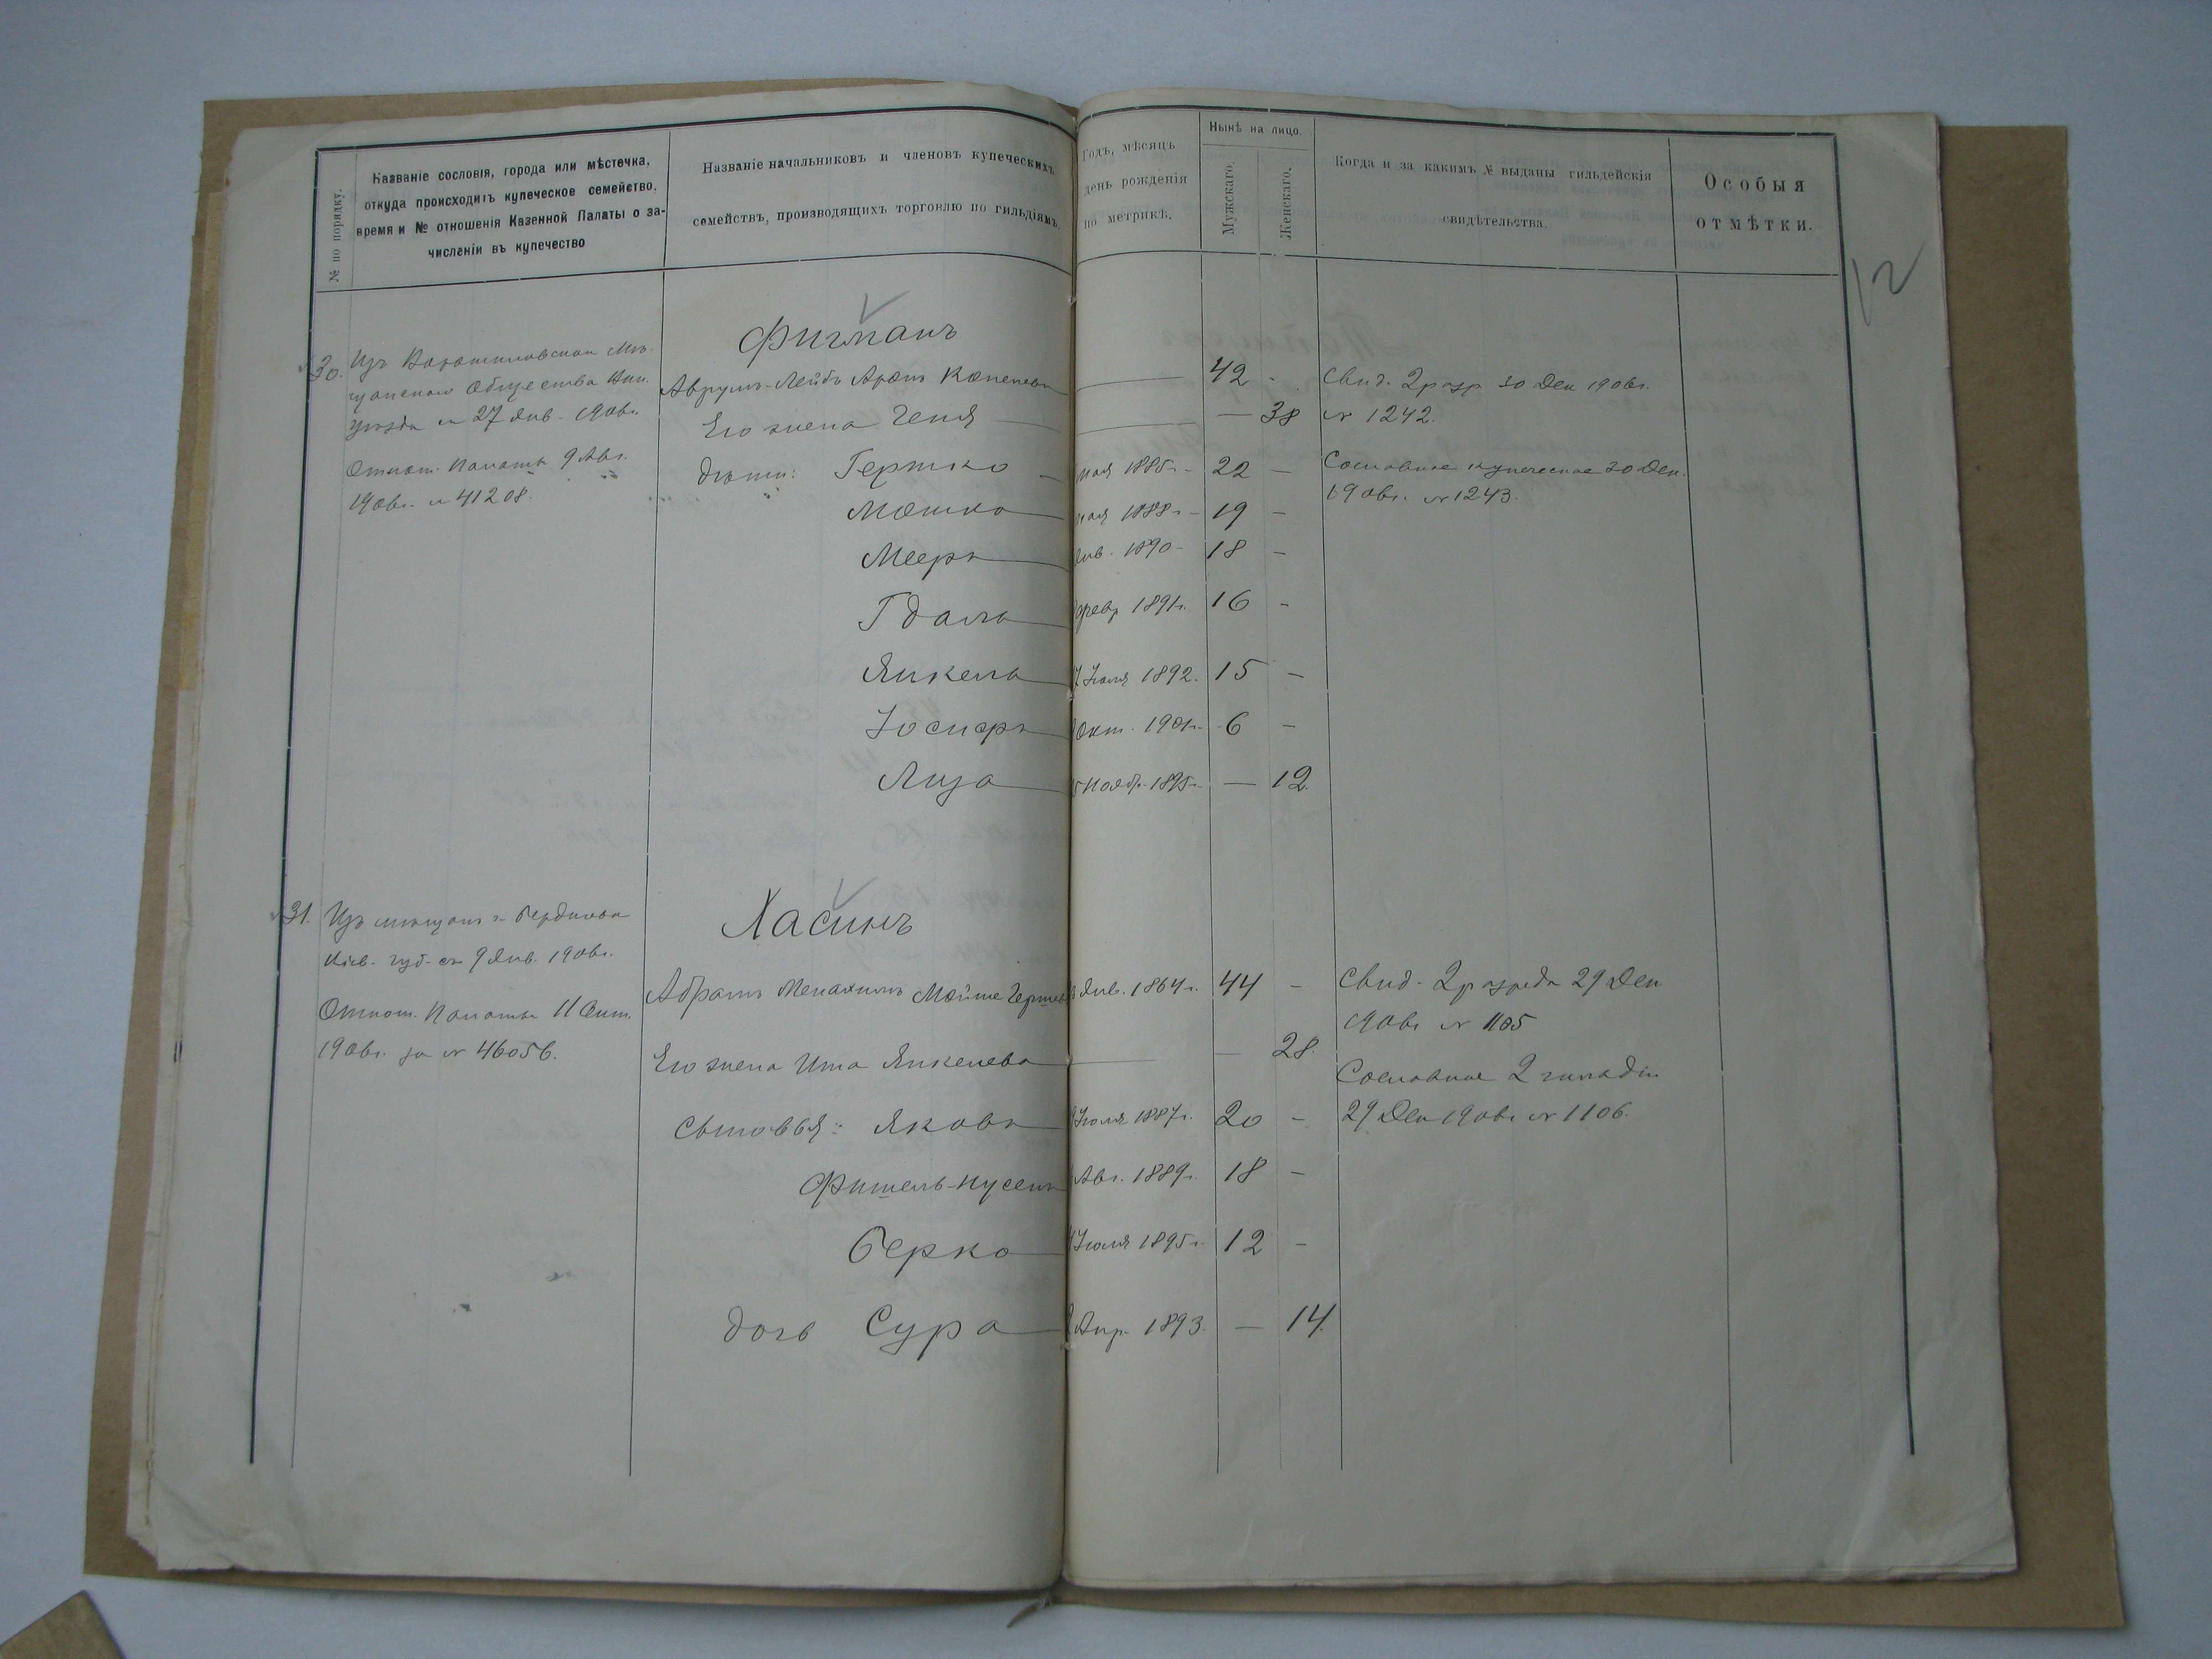 № по порядку.
Названіе сословія, города или мѣстечка,
откуда происходитъ купеческое семейство,
время и № отношенія Казенной Палаты о за-
численіи въ купечество
Названіе начальниковъ и членовъ купеческихъ
семействъ, производящихъ торговлю по гильдіямъ.
Годъ, мѣсяцъ
день рожденія
по метрикѣ.
Нынѣ на лицо.
Мужскаго.
Женскаго.
Когда и за какимъ № выданы гильдейскія
свидѣтельства.
Особыя
отмѣтки.
12
Фигманъ
30. Изъ Ворошиловскаго Мѣ-
щанскаго Общества
уѣзда съ 27 Янв. 1906г.
Отнош. Палаты 9 Авг.
1906г. № 41208.
Аврумъ-Лейбъ Аронъ — 42 -
Его жена Геня — — 38
дѣти: Гершко — мая 1885г. - 22 —
Мошко — мая 1888г. - 19 -
Мееръ — Янв. 1890 - 18 -
Гдаль — февр 1891г. 16 -
Янкель — 7 Іюля 1892. 15 -
Іосифъ — Окт. 1901г. 6 -
Лиза — 5 Нояб. 1895г. — 12.
Свид. 2 разр 30 Дек 1906г.
№ 1242.
Сословное купеческое 30 Дек.
1906г. № 1243.
Хасинъ
31. Изъ мѣщанъ г. Бердичева
Кіев. губ. съ 9 Янв. 1906г.
Отнош. Палаты 11 Сент.
1906г. за № 46056.
Абрамъ Менахимъ Мойше Гершев Янв. 1864г. 44 -
Его жена Ита Янкелева — — 28.
Сыновья: Яковъ — Іюля 1887г. 20 -
Фишель-Нусенъ Авг. 1889г. 18 -
Берко — Іюля 1895г. 12 -
дочь Сура — Апр. 1893. — 14.
Свид. 2 разряда 29 Дек
1906г № 1105
Сословное 2 гильдіи
29 Дек 1906г № 1106.